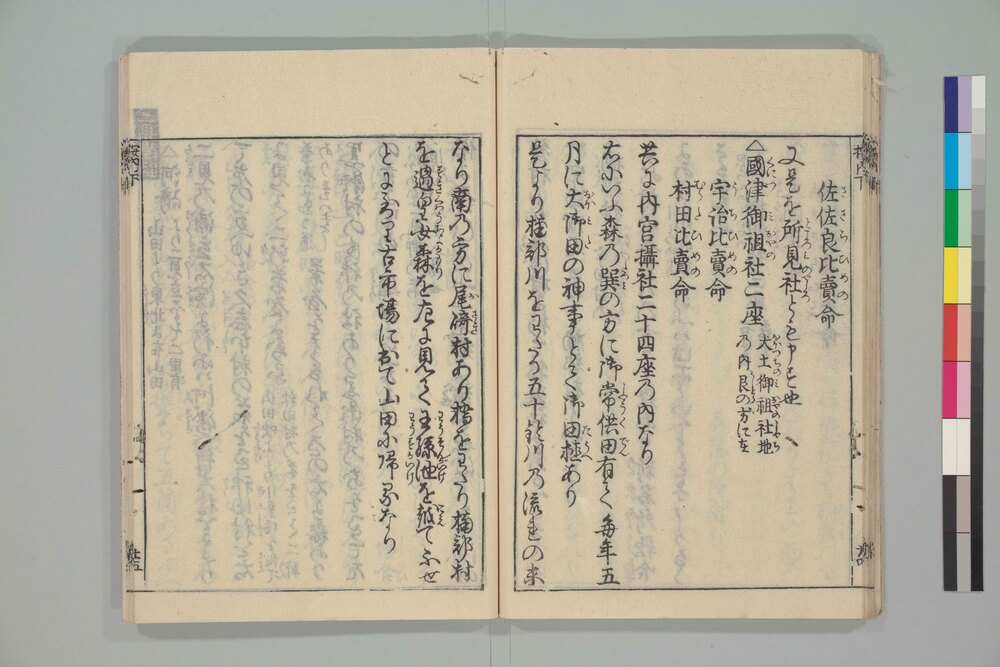 佐佐良比賣命
又是を所見社とも申す也
△國津御祖社二座
大土御祖社地
乃内艮の方に在
宇治比賣命
村田比賣命
共に内宮攝社二十四座乃内なり
右にいふ森乃巽の方に御常供田有て毎年五
月に大御田の神事として御田植あり
是より楠部川をわたる五十鈴川乃流れの末
なり南乃方に尾﨑村あり橋をわたり楠部村
を過皇女森を左に見て王孫池を越て
とよ古市場に出て山田に帰るなり